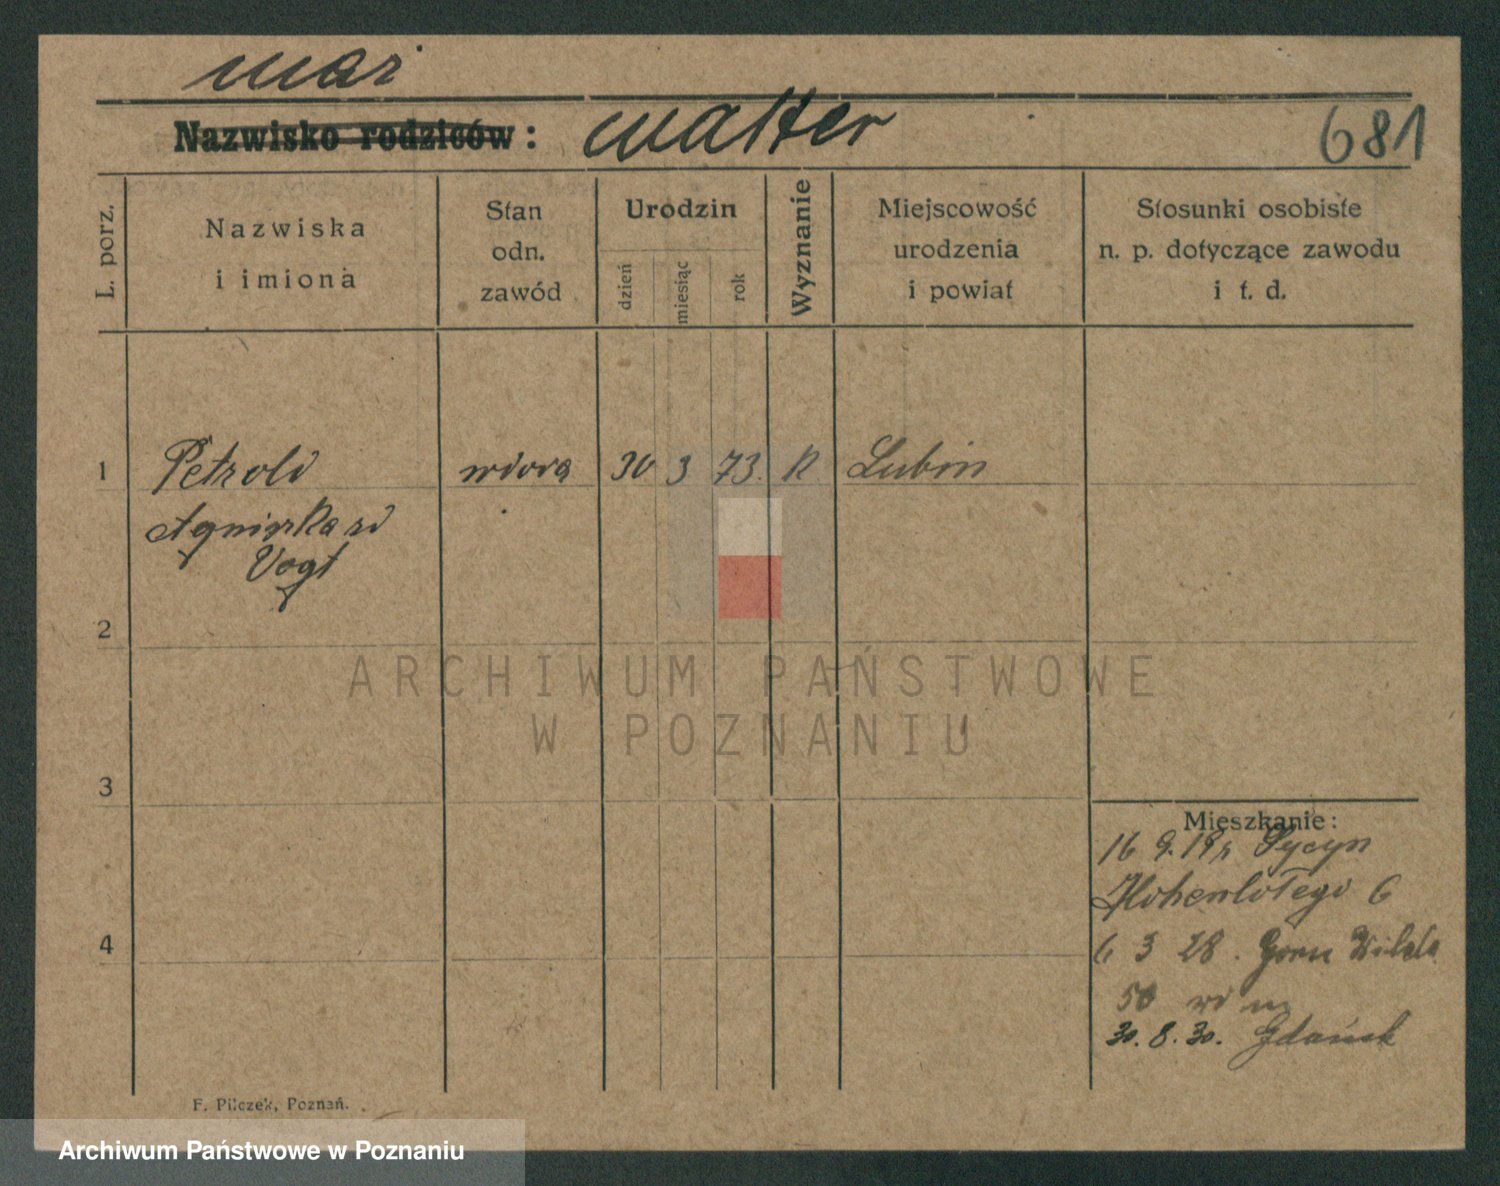 mąż
Nazwisko rodziców: Malter
681
L. porz.
Nazwiska
i imiona
Stan
odn.
zawód
Urodzin
dzień
miesiąc
rok
Wyznanie
Miejscowość
urodzenia
i powiat
Stosunki osobiste
n. p. dotyczące zawodu
i t. d.
1 Petzold wdowa 30 3 73. K Lubin
Agnieszka zd
Vogt
2
ARCHIWUM PAŃSTWOWE
W POZNANIU
3
Mieszkanie:
16 9. 19r
Hohenlohego 6
4
6 3 28. Górn Wilda
50
30. 8. 30. Gdańsk
F. Pilczek, Poznań.
Archiwum Państwowe w Poznaniu